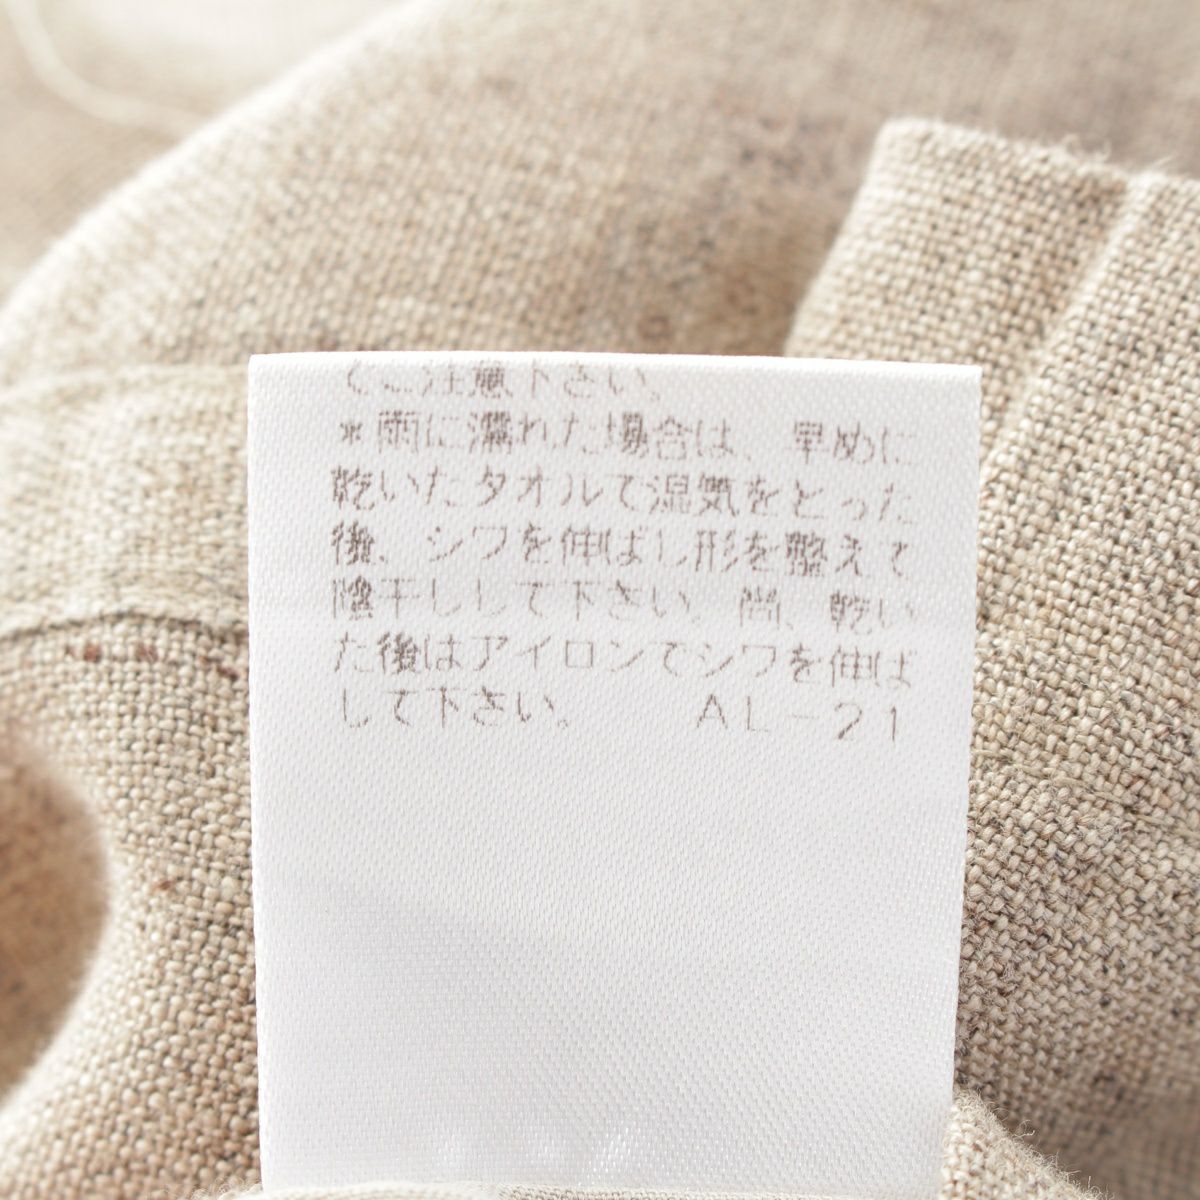 てご注意下さい。
＊雨に濡れた場合は、早めに
乾いたタオルで湿気をとった
後、シワを伸ばし形を整えて
陰干しして下さい。尚、乾い
た後はアイロンでシワを伸ば
して下さい。　　ＡＬ－２１